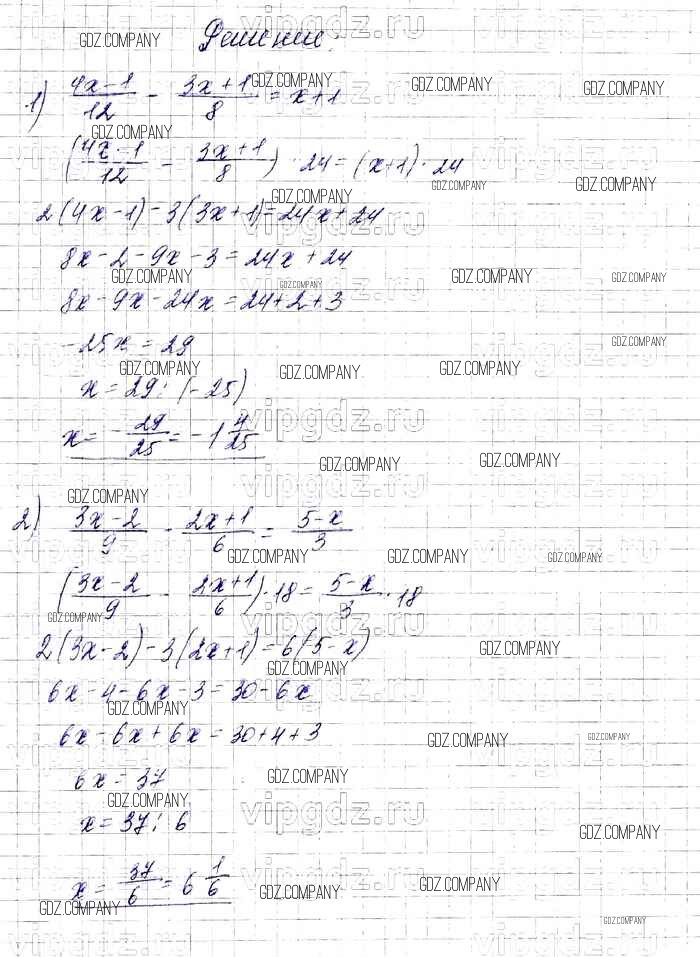 Решение:
1) (4x-1)/12 - (3x+1)/8 = x+1
((4x-1)/12 - (3x+1)/8) · 24 = (x+1) · 24
2(4x-1)-3(3x+1)=24x+24
8x-2-9x-3=24x+24
8x-9x-24x=24+2+3
-25x=29
x=29:(-25)
x= -29/25 = -1 4/25
2) (3x-2)/9 - (2x+1)/6 = (5-x)/3
((3x-2)/9 - (2x+1)/6) · 18 = (5-x)/3 · 18
2(3x-2)-3(2x+1)=6(5-x)
6x-4-6x-3=30-6x
6x-6x+6x=30+4+3
6x=37
x=37:6
x= 37/6 = 6 1/6
GDZ.COMPANY
vipgdz.ru